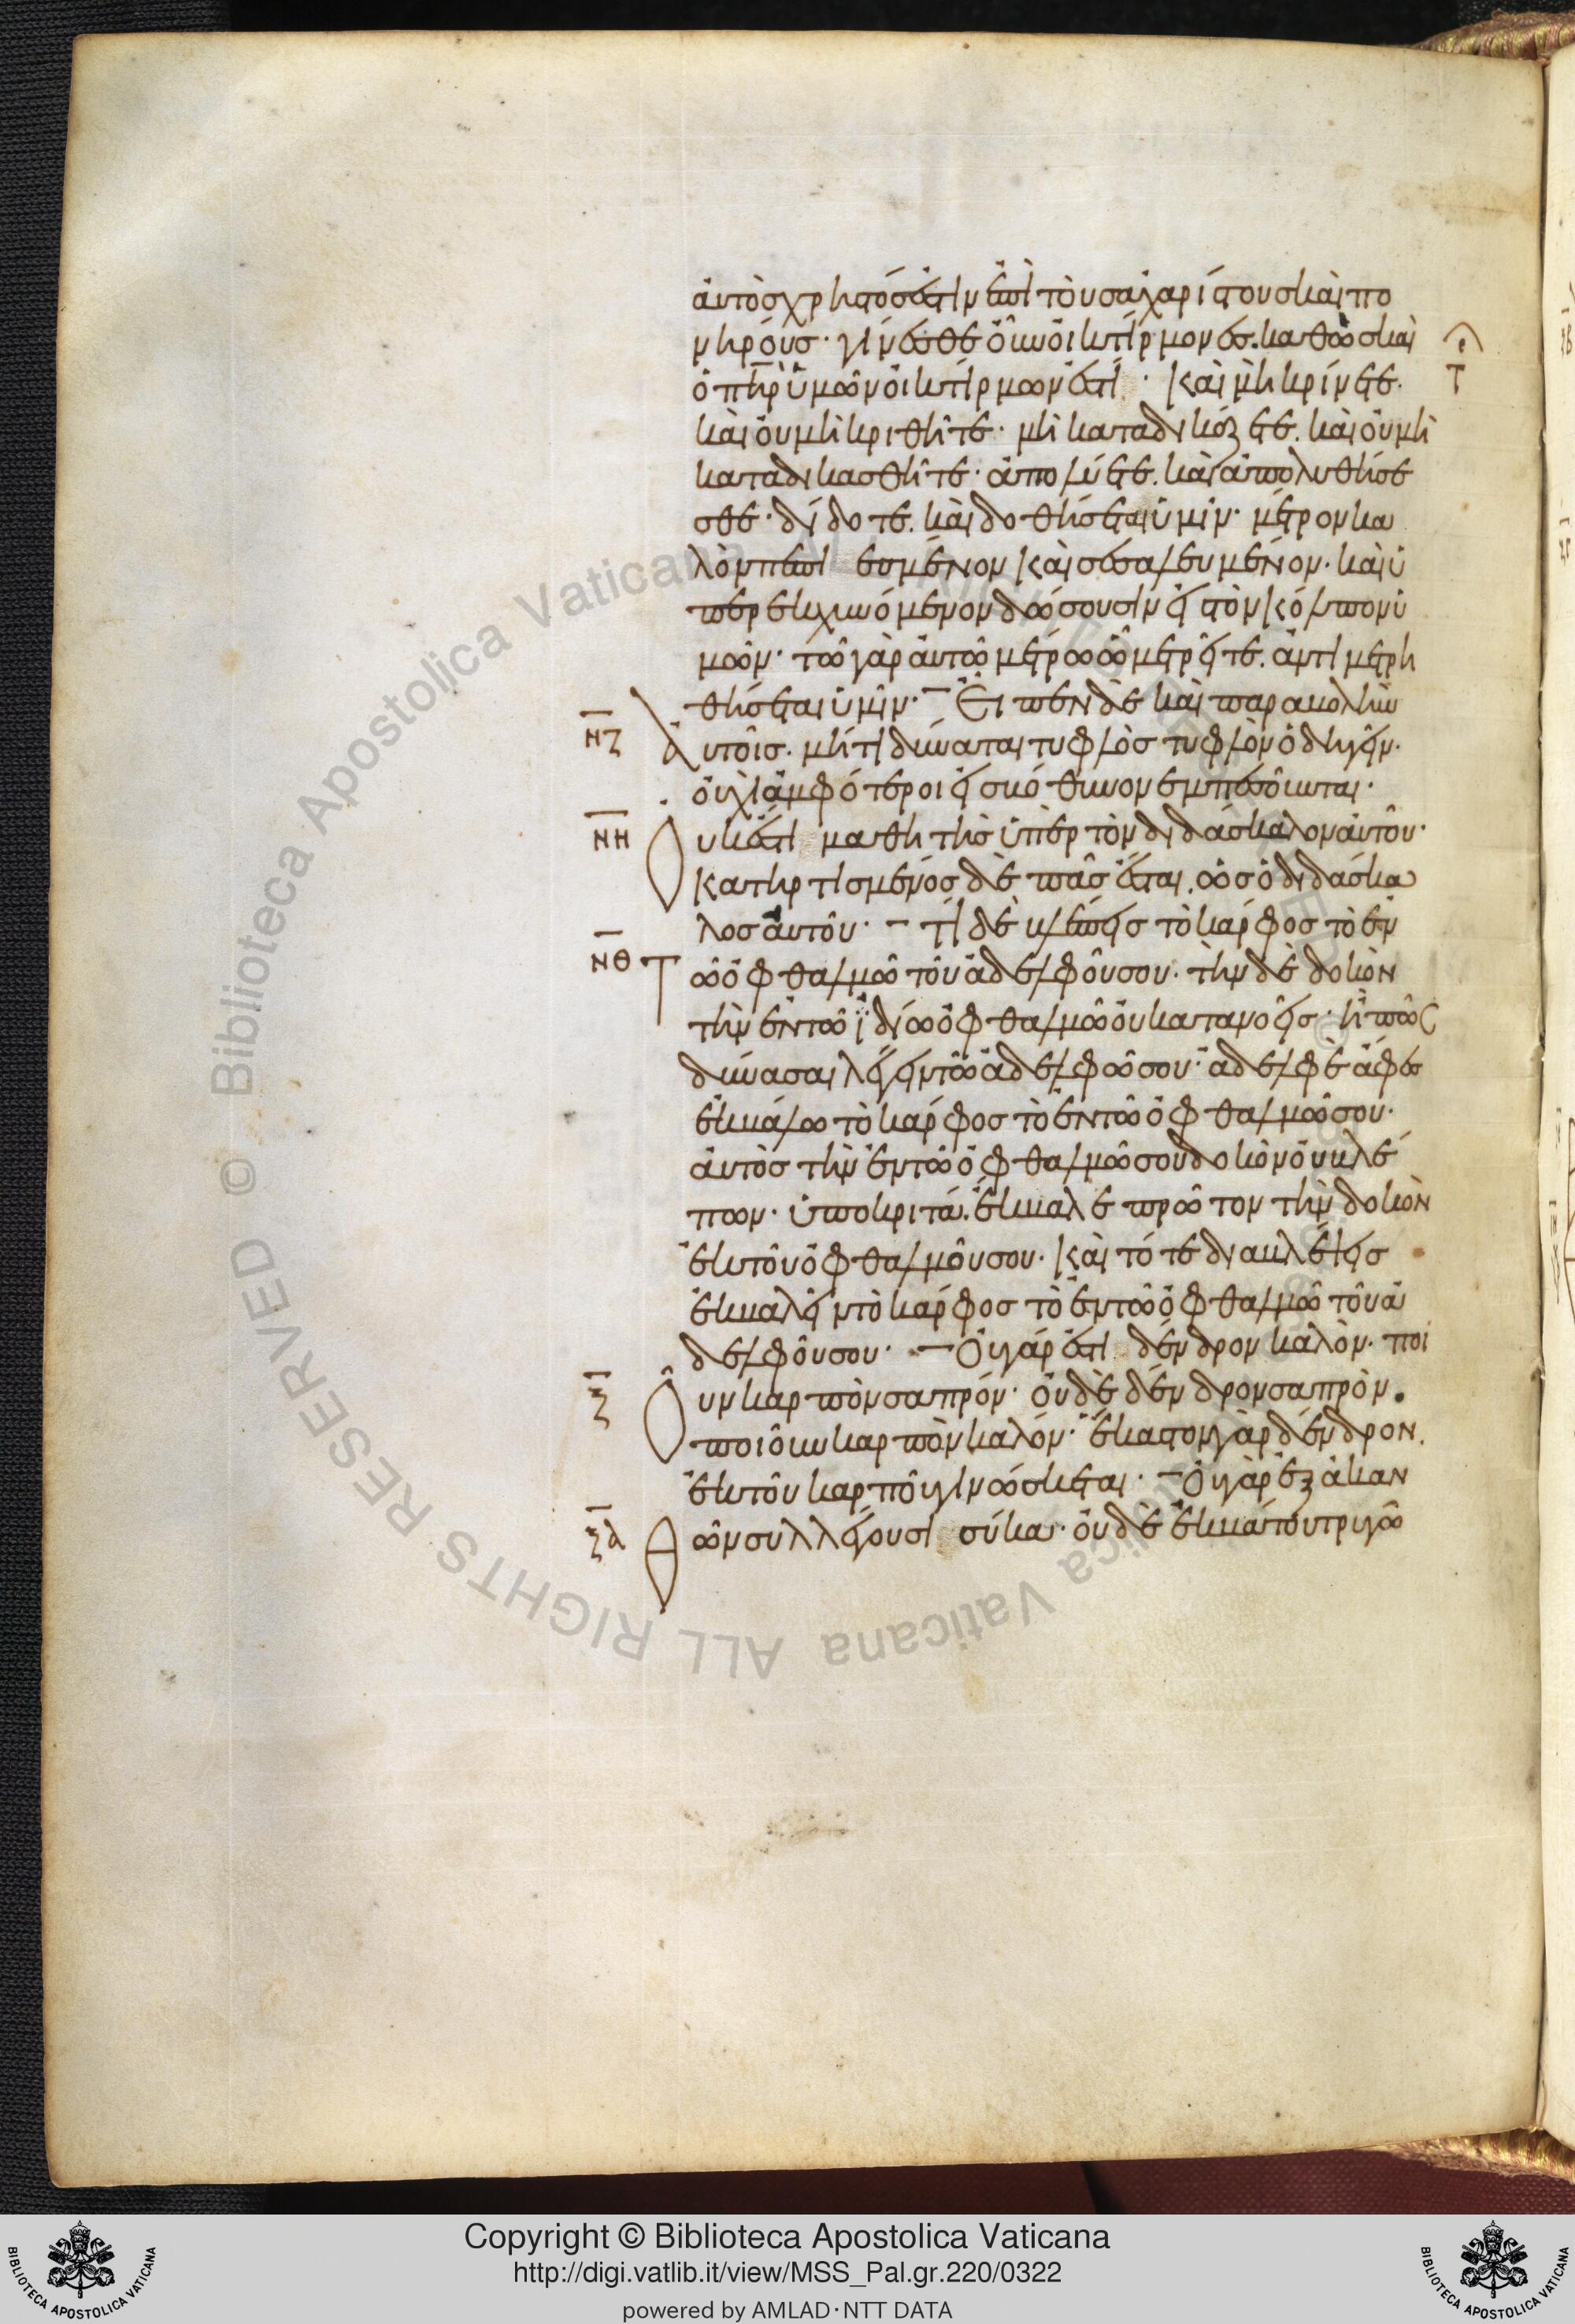 αὐτὸσ χρηστόσ ἐστὶν ἐπὶ τοὺσ ἀχαρίστουσ καὶ πο
νηρούσ· γίνεσθε οὖν οἰκτίρμονεσ. καθὼσ καὶ
ὁ πη̅ρ ὑμῶν οἰκτίρμων ἐστί· Καὶ μὴ κρίνετε.
τ
καὶ οὐ μὴ κριθῆτε· μὴ καταδικάζετε. καὶ οὐ μὴ
καταδικασθῆτε· ἀπολύετε. καὶ ἀπολυθήσε
σθε· δίδοτε. καὶ δοθήσεται ὑμῖν· μέτρον κα
λὸν πεπιεσμένον καὶ σεσαλευμένον. καὶ ὑ
περεκχυνόμενον δώσουσιν εἰς τὸν κόλπον ὑ
μῶν· τῶ γὰρ αὐτῶ μέτρω ὧ μετρεῖτε. ἀντιμετρη
θήσεται ὑμῖν· Εἶπεν δὲ καὶ παραβολὴν
νζ αὐτοῖσ. μήτι δύναται τυφλὸσ τυφλὸν ὁδηγεῖν.
οὐχὶ ἀμφότεροι εἰσ βόθυνον ἐμπεσοῦνται·
νη Οὐκ ἐστὶ μαθητὴσ ὑπὲρ τὸν διδάσκαλον αὐτοῦ·
κατηρτισμένος δὲ πᾶσ ἔσται. ὡσ ὁ διδάσκα
λοσ αὐτοῦ· Τί δὲ βλέπεισ τὸ κάρφοσ τὸ ἐν
νθ Τῶ ὀφθαλμῶ τοῦ ἀδελφοῦ σου· τὴν δὲ δοκὸν
τὴν ἐν τῶ ἰδίω ὀφθαλμῶ οὐ κατανοεῖσ· ἢ πῶς
δύνασαι λέγειν τῶ ἀδελφῶ σου· ἀδελφὲ ἄφεσ
ἐκβάλω τὸ κάρφοσ τὸ ἐν τῶ ὀφθαλμῶ σου·
αὐτὸσ τὴν ἐν τῶ ὀφθαλμῶ σου δοκὸν οὐ βλέ
πων· ὑποκριτά. ἔκβαλε πρῶτον τὴν δοκὸν
ἐκ τοῦ ὀφθαλμοῦ σου· καὶ τότε διαβλέψεισ
ἐκβαλεῖν τὸ κάρφοσ τὸ ἐν τῶ ὀφθαλμῶ τοῦ ἀ
δελφοῦ σου· Οὐ γάρ ἐστι δένδρον καλὸν. ποι
ξ Οῦν καρπὸν σαπρόν· οὐδὲ δένδρον σαπρὸν.
ποιοῦν καρπὸν καλόν· ἕκαστον γὰρ δένδρον.
ἐκ τοῦ καρποῦ γινώσκεται· Οὐ γὰρ ἐξ ἀκαν
ξα Θῶν συλλέγουσι σύκα· οὐδὲ ἐκ βάτου τρυγῶ
Copyright © Biblioteca Apostolica Vaticana
http://digi.vatlib.it/view/MSS_Pal.gr.220/0322
powered by AMLAD·NTT DATA
BIBLIOTECA APOSTOLICA VATICANA
BIBLIOTECA APOSTOLICA VATICANA
© Biblioteca Apostolica Vaticana ALL RIGHTS RESERVED